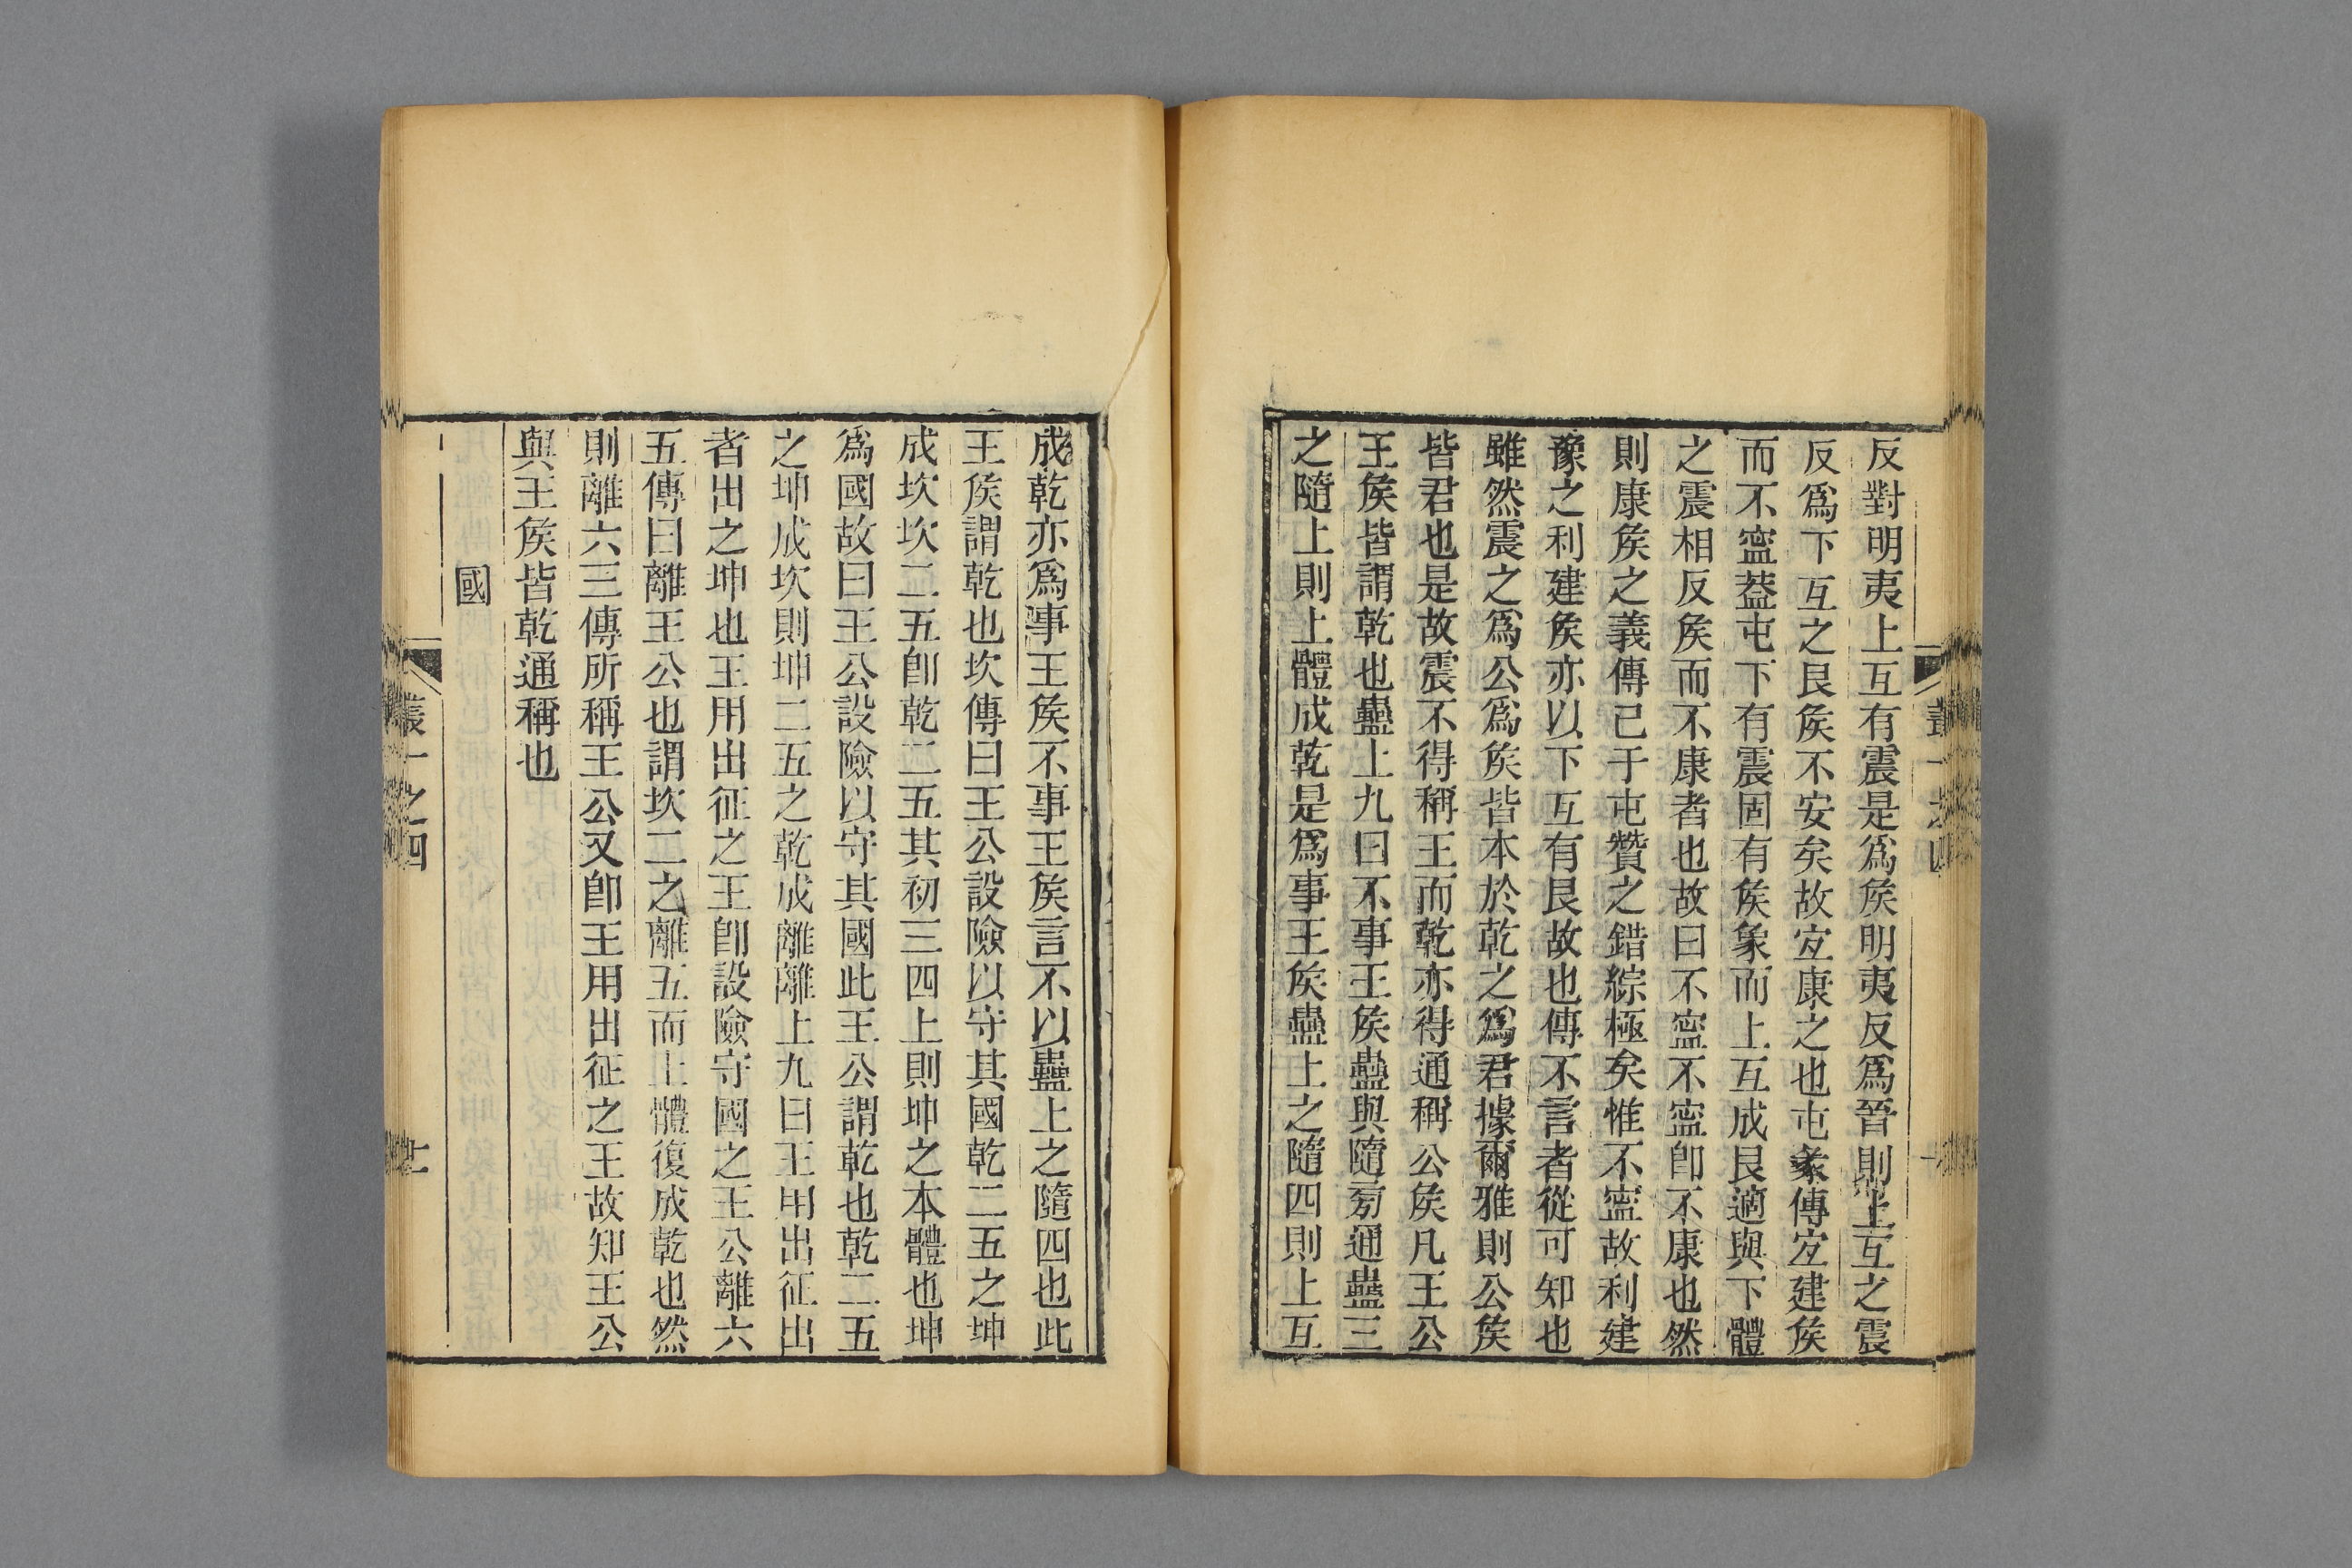 反對明夷上互有震是爲矦明夷反爲晉則上互之震
反爲下互之艮矦不安矣故宐康之也屯彖傳宐建矦
而不寍葢屯下有震固有矦象而上互成艮適與下體
之震相反矦而不康者也故曰不寍不寍卽不康也然
則康矦之義傳已于屯贊之錯綜極矣惟不寍故利建
豫之利建矦亦以下互有艮故也傳不言者從可知也
雖然震之爲公爲矦皆本於乾之爲君據爾雅則公矦
皆君也是故震不得稱王而乾亦得通稱公矦凡王公
王矦皆謂乾也蠱上九曰不事王矦蠱與隨㫄通蠱三
之隨上則上體成乾是爲事王矦蠱上之隨四則上互
成乾亦爲事王矦不事王矦言不以蠱上之隨四也此
王矦謂乾也坎傳曰王公設險以守其國乾二五之坤
成坎坎二五卽乾二五其初三四上則坤之本體也坤
爲國故曰王公設險以守其國此王公謂乾也乾二五
之坤成坎則坤二五之乾成離離上九曰王用出征出
者出之坤也王用出征之王卽設險守國之王公離六
五傳曰離王公也謂坎二之離五而上體復成乾也然
則離六三傳所稱王公又卽王用出征之王故知王公
與王矦皆乾通稱也
國
叢一之四
廿